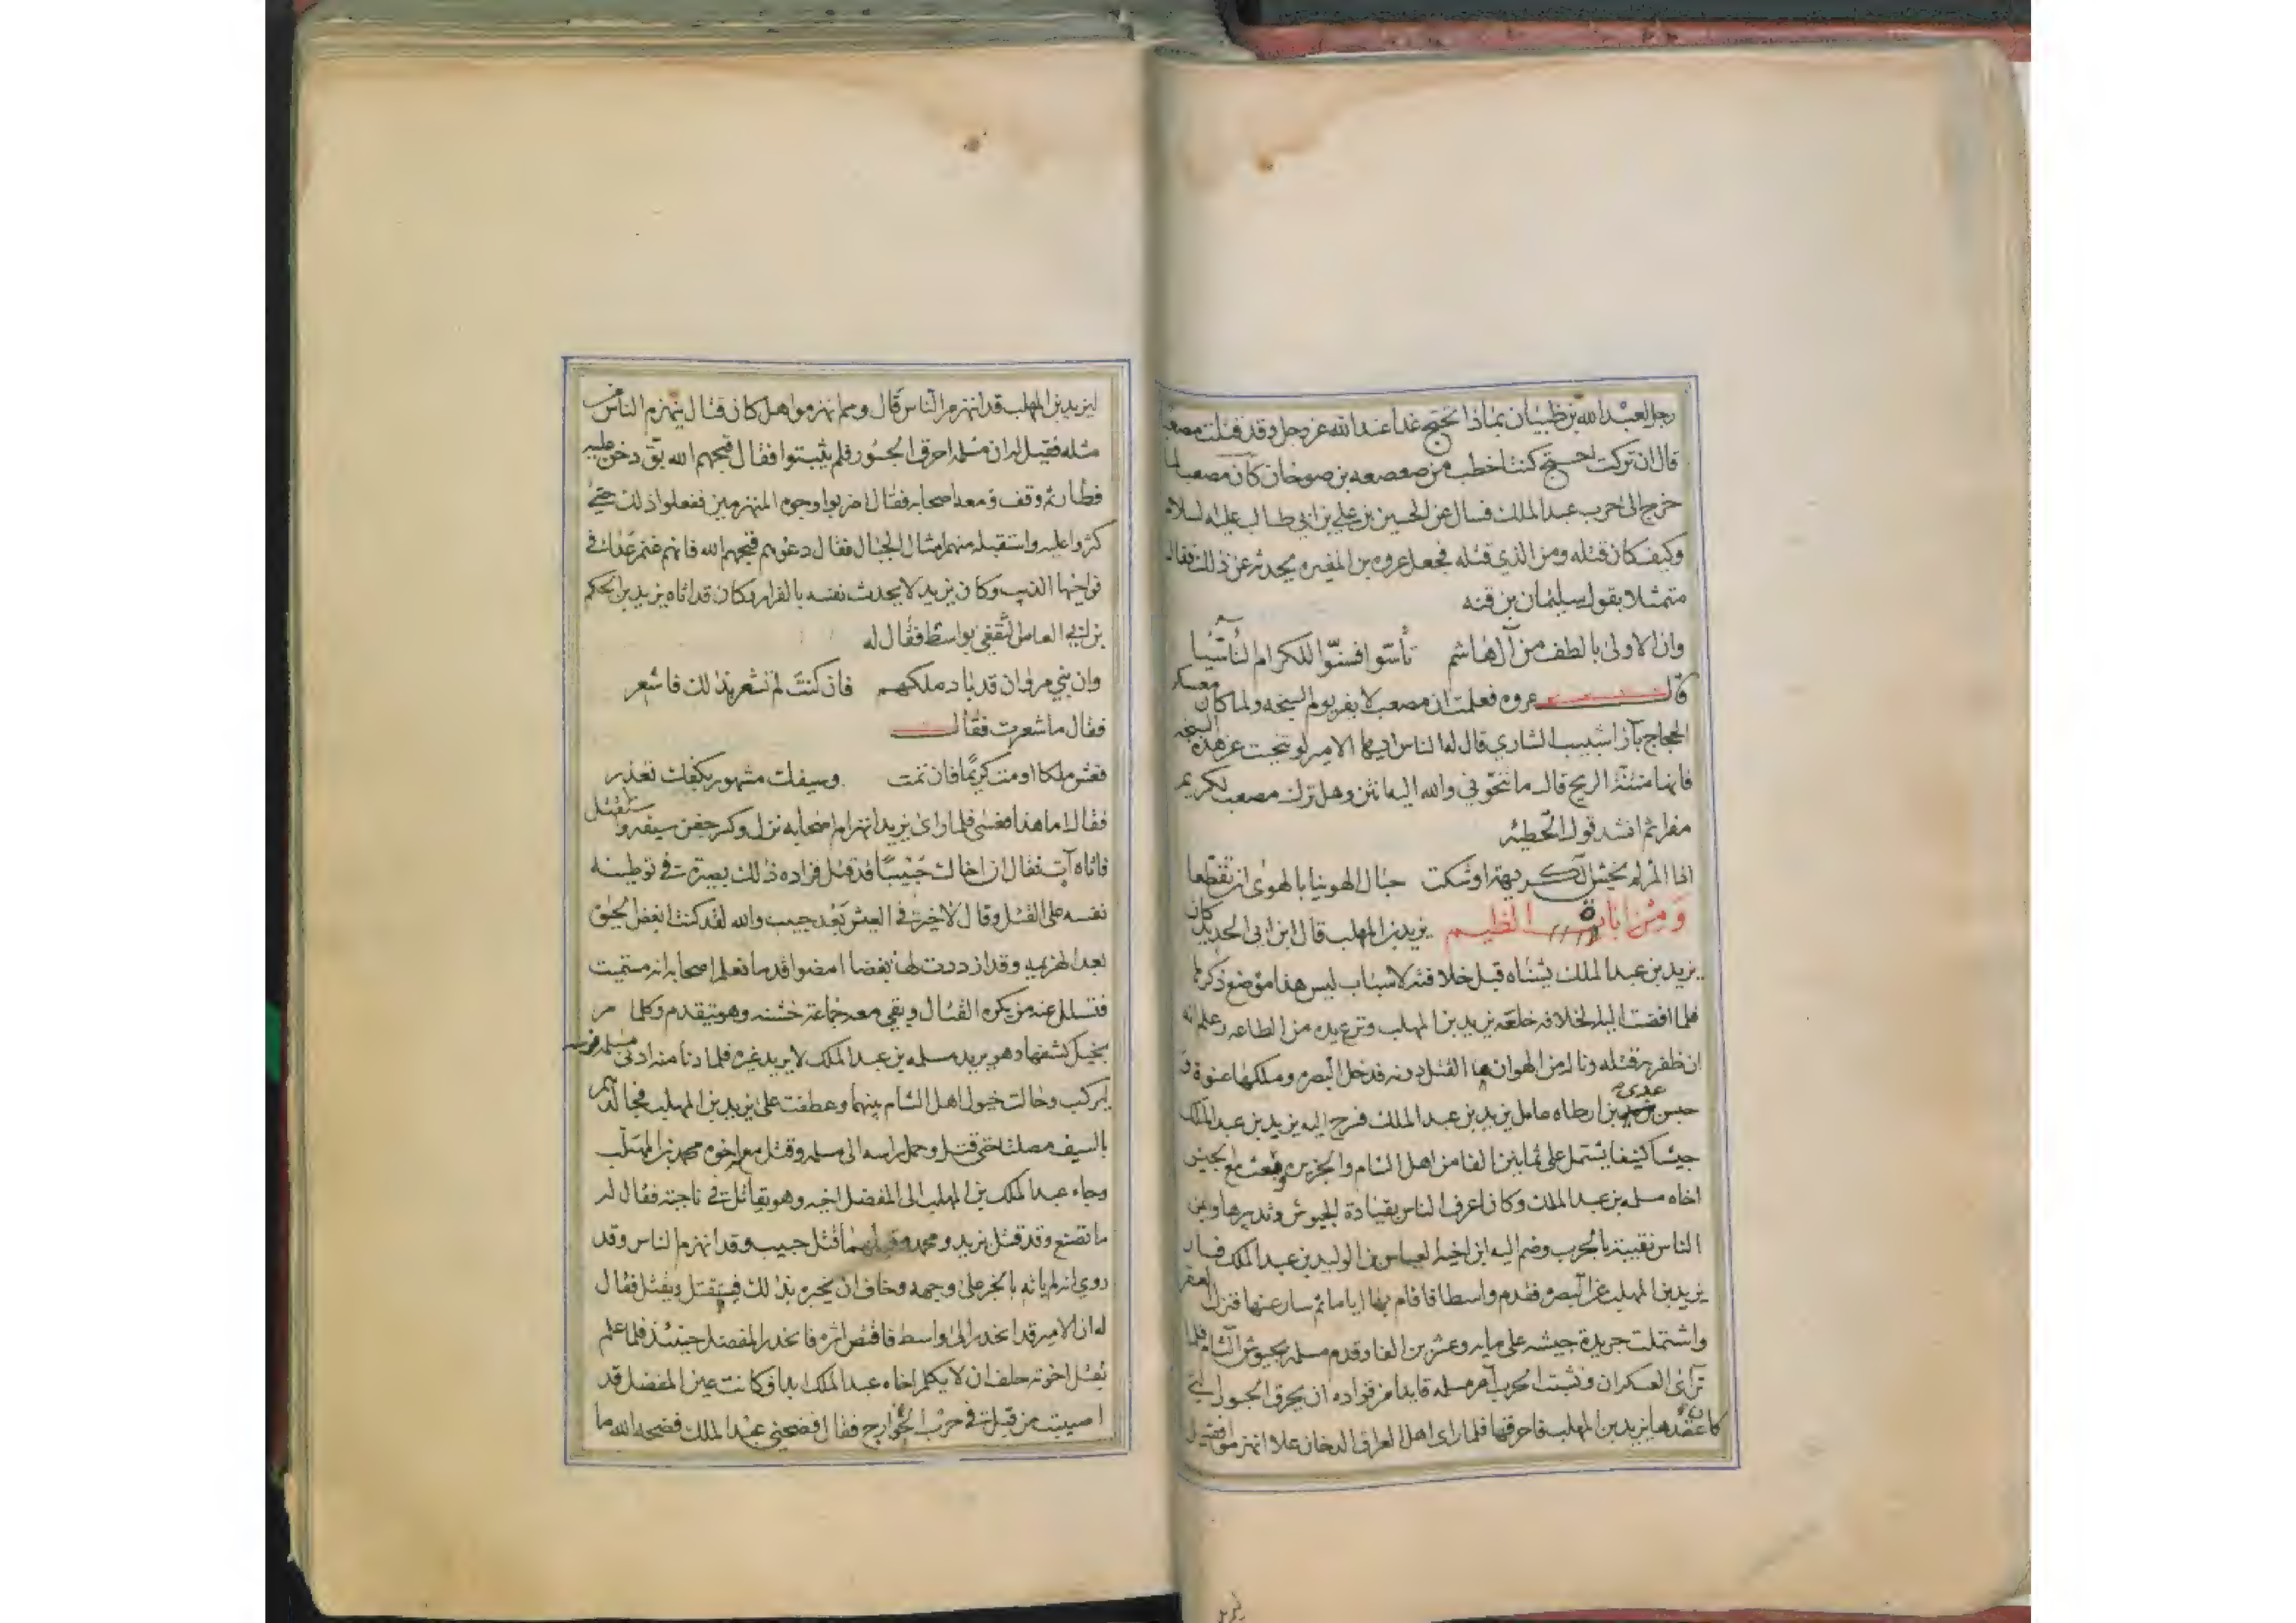 رجل لعبد الله بن ظبيان بماذا تحتج غدا عند الله عز وجل وقد قتلت مصعبا
قال ان تركت احتج كنت اخطب من صعصعه بن صوحان كان مصعب لما
خرج الى حرب عبد الملك فسال عن الحسين بن علي بن ابي طالب عليه السلام
وكيف كان قتله ومن الذي قتله فجعل عروه بن المغيره يحدثه عن ذلك فقال
متمثلا بقول سليمان بن قته
وان الاولى بالطف من آل هاشم تأسوا فسنّوا للكرام التأسّيا
قال عروه فعلمت ان مصعب لا يفر يوم السبخه ولما كان معسكر
الحجاج بآزا شبيب الشاري قال له الناس ايها الامير لو تنحيت عن هذه السبخه
فانها منتنة الريح قال ما تنحوني والله اليه انتن وهل ترك مصعب لكريم
مفرا ثم انشد قول الحطيه
اذا المرء لم يخش الكريهة اوشكت حبال الهوينا بالهوى ان تقطعا
ومن اباة الظيم يزيد بن المهلب قال ابن ابي الحديد كان
يزيد بن عبد الملك يشناه قبل خلافته لاسباب ليس هذا موضع ذكرها
فلما افضت اليه الخلافه خلعه يزيد بن المهلب ونزع يده من الطاعه وعلم انه
ان ظفر به قتله وناله من الهوان ما القتل دونه فدخل البصره وملكها عنوة و
حبس عدي بن ارطاه عامل يزيد بن عبد الملك فسرح اليه يزيد بن عبد الملك
جيشا كثيفا يشتمل على ثمانين الفا من اهل الشام والجزيره وبعث مع الجيش
اخاه مسلمه بن عبد الملك وكان اعرف الناس بقيادة الجيوش وتدبيرها وايمن
الناس نقيبة بالحرب وضم اليه ابن اخيه العباس بن الوليد بن عبد الملك فسار
يزيد بن المهلب عن البصره فقدم واسطا فاقام بها اياما ثم سار عنها فنزل العقر
واشتملت جريدة جيشه على مايه وعشرين الفا وقدم مسلمه بجيوش الشام فلما
ترآئى العسكران ونشبت الحرب امر مسلمه قايدا من قواده ان يحرق الجسور التي
كان عقدها يزيد بن المهلب فاحرقها فلما راى اهل العراق الدخان علا انهزموا فقيل
ليزيد بن المهلب قد انهزم الناس قال ومم انهزموا هل كان قتال ينهزم الناس من
مثله فقيل له ان مسلمه احرق الجسور فلم يثبتوا فقال قبحهم الله بقّ دخن عليه
فطار ثم وقف ومعه اصحابه فقال اضربوا وجوه المنهزمين ففعلوا ذلك حتى
كثروا عليه واستقبله منهم امثال الجبال فقال دعوهم قبحهم الله فانهم غنم عدا في
نواحيها الذيب وكان يزيد لا يحدث نفسه بالفرار وكان قد اتاه يزيد بن الحكم
بن ابي العاص الثقفي بواسط فقال له
وان بني مروان قد باد ملكهم فان كنت لم تشعر بذلك فاشعر
فقال ما شعرت فقال
فعش ملكا او مت كريما فان تمت وسيفك مشهور بكفك تعذر
فقال اما هذا فعسى فلما راى يزيد انهزام اصحابه نزل وكسر جفن سيفه واستقتل
فاتاه آت فقال ان اخاك حبيبا قد قتل فزاده ذلك بصيرة في توطينه
نفسه على القتل وقال لا خير في العيش بعد حبيب والله لقد كنت ابغض الحيوة
بعد الهزيمه وقد ازددت لها بغضا امضوا قدما فعلم اصحابه انه مستميت
فتسلل عنه من يكره القتال وبقي معه جماعة خشنه وهو يتقدم وكلما مر
بخيل كشفها وهو يريد مسلمه بن عبد الملك لا يريد غيره فلما دنا منه ادنى مسلمه فرسه
ليركب وحالت خيول اهل الشام بينهما وعطفت على يزيد بن المهلب فجالدهم
بالسيف مصلتا حتى قتل وحمل راسه الى مسلمه وقتل معه اخوه محمد بن المهلب
وجاء عبد الملك بن المهلب الى المفضل اخيه وهو يقاتل في ناحيته فقال له
ما تصنع وقد قتل يزيد ومحمد وقبلهما قتل حبيب وقد انهزم الناس وقد
روي انه لم ياته بالخبر على وجهه وخاف ان يخبره بذلك فيستقتل ويقتل فقال
له ان الامير قد انحدر الى واسط فاقتص اثره فانحدر المفضل حينئذ فلما علم
بقتل اخوته حلف ان لا يكلم اخاه عبد الملك ابدا وكانت عين المفضل قد
اصيبت من قبل في حرب الخوارج فقال فضحني عبد الملك فضحه الله ما